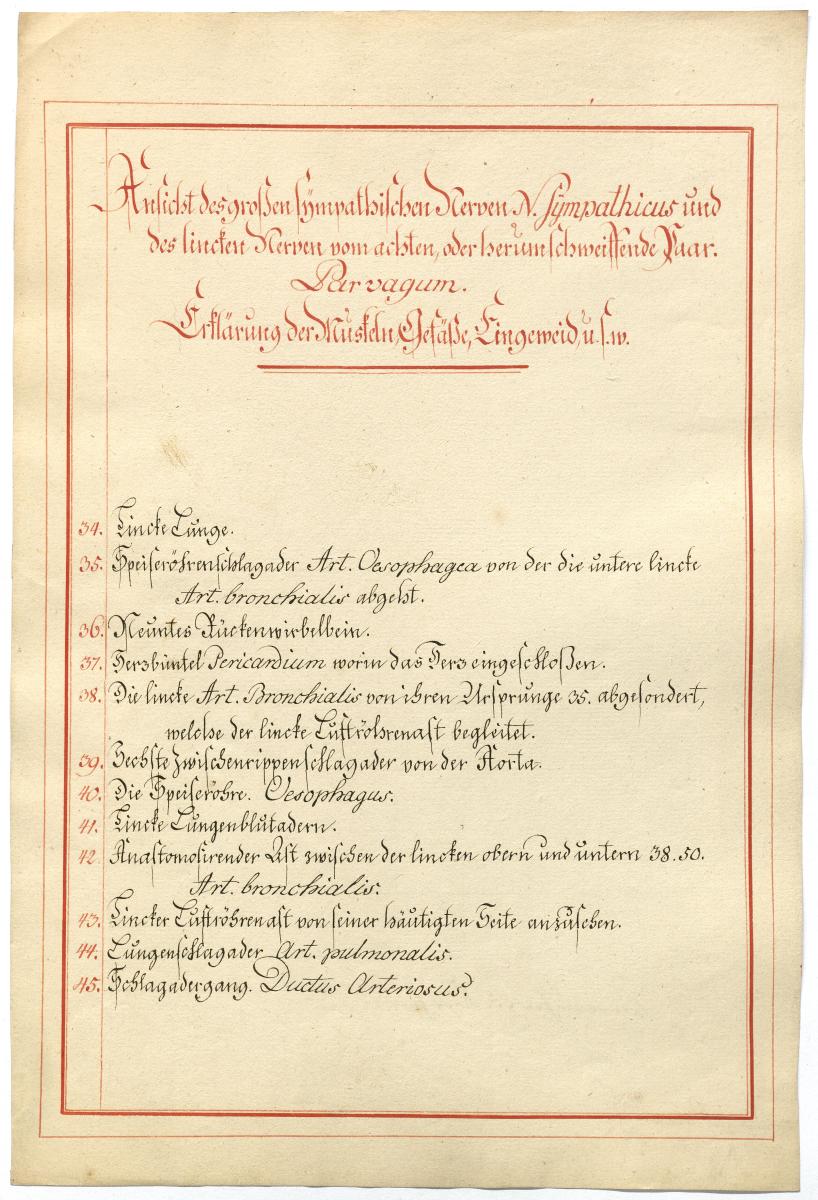 Ansicht des großen sympathischen Nerven N. Sympathicus und
des lincken Nerven vom achten, oder herumschweiffende Paar.
Par vagum.
Erklärung der Muskeln, Gefäße, Eingeweid, u.s.w.
34. Lincke Lunge.
35. Speiseröhrenschlagader Art. Oesophagea von der die untere lincke
Art. bronchialis abgeht.
36. Neuntes Rückenwirbelbein.
37. Herzbeutel Pericardium worin das Herz eingeschloßen.
38. Die lincke Art. Bronchialis von ihren Ursprunge 35. abgesondert,
welche der lincke Luftröhrenast begleitet.
39. Sechste Zwischenrippenschlagader von der Aorta.
40. Die Speiseröhre. Oesophagus.
41. Lincke Lungenblutadern.
42. Anastomosirender Ast zwischen der lincken obern und untern 38. 50.
Art. bronchialis.
43. Lincker Luftröhrenast von seiner häutigten Seite anzusehen.
44. Lungenschlagader Art. pulmonalis.
45. Schlagadergang. Ductus Arteriosus.